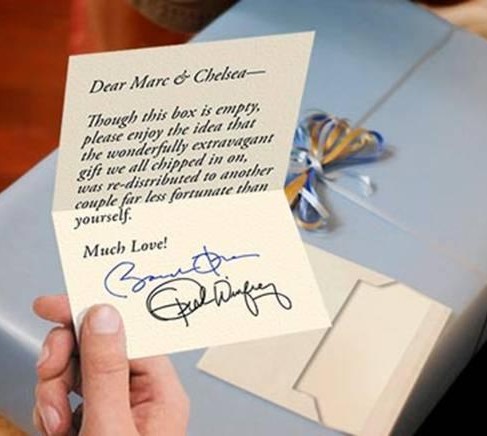 Dear Marc & Chelsea—
Though this box is empty,
please enjoy the idea that
the wonderfully extravagant
gift we all chipped in on,
was re-distributed to another
couple far less fortunate than
yourself.
Much Love!
Barack Obama
Oprah Winfrey